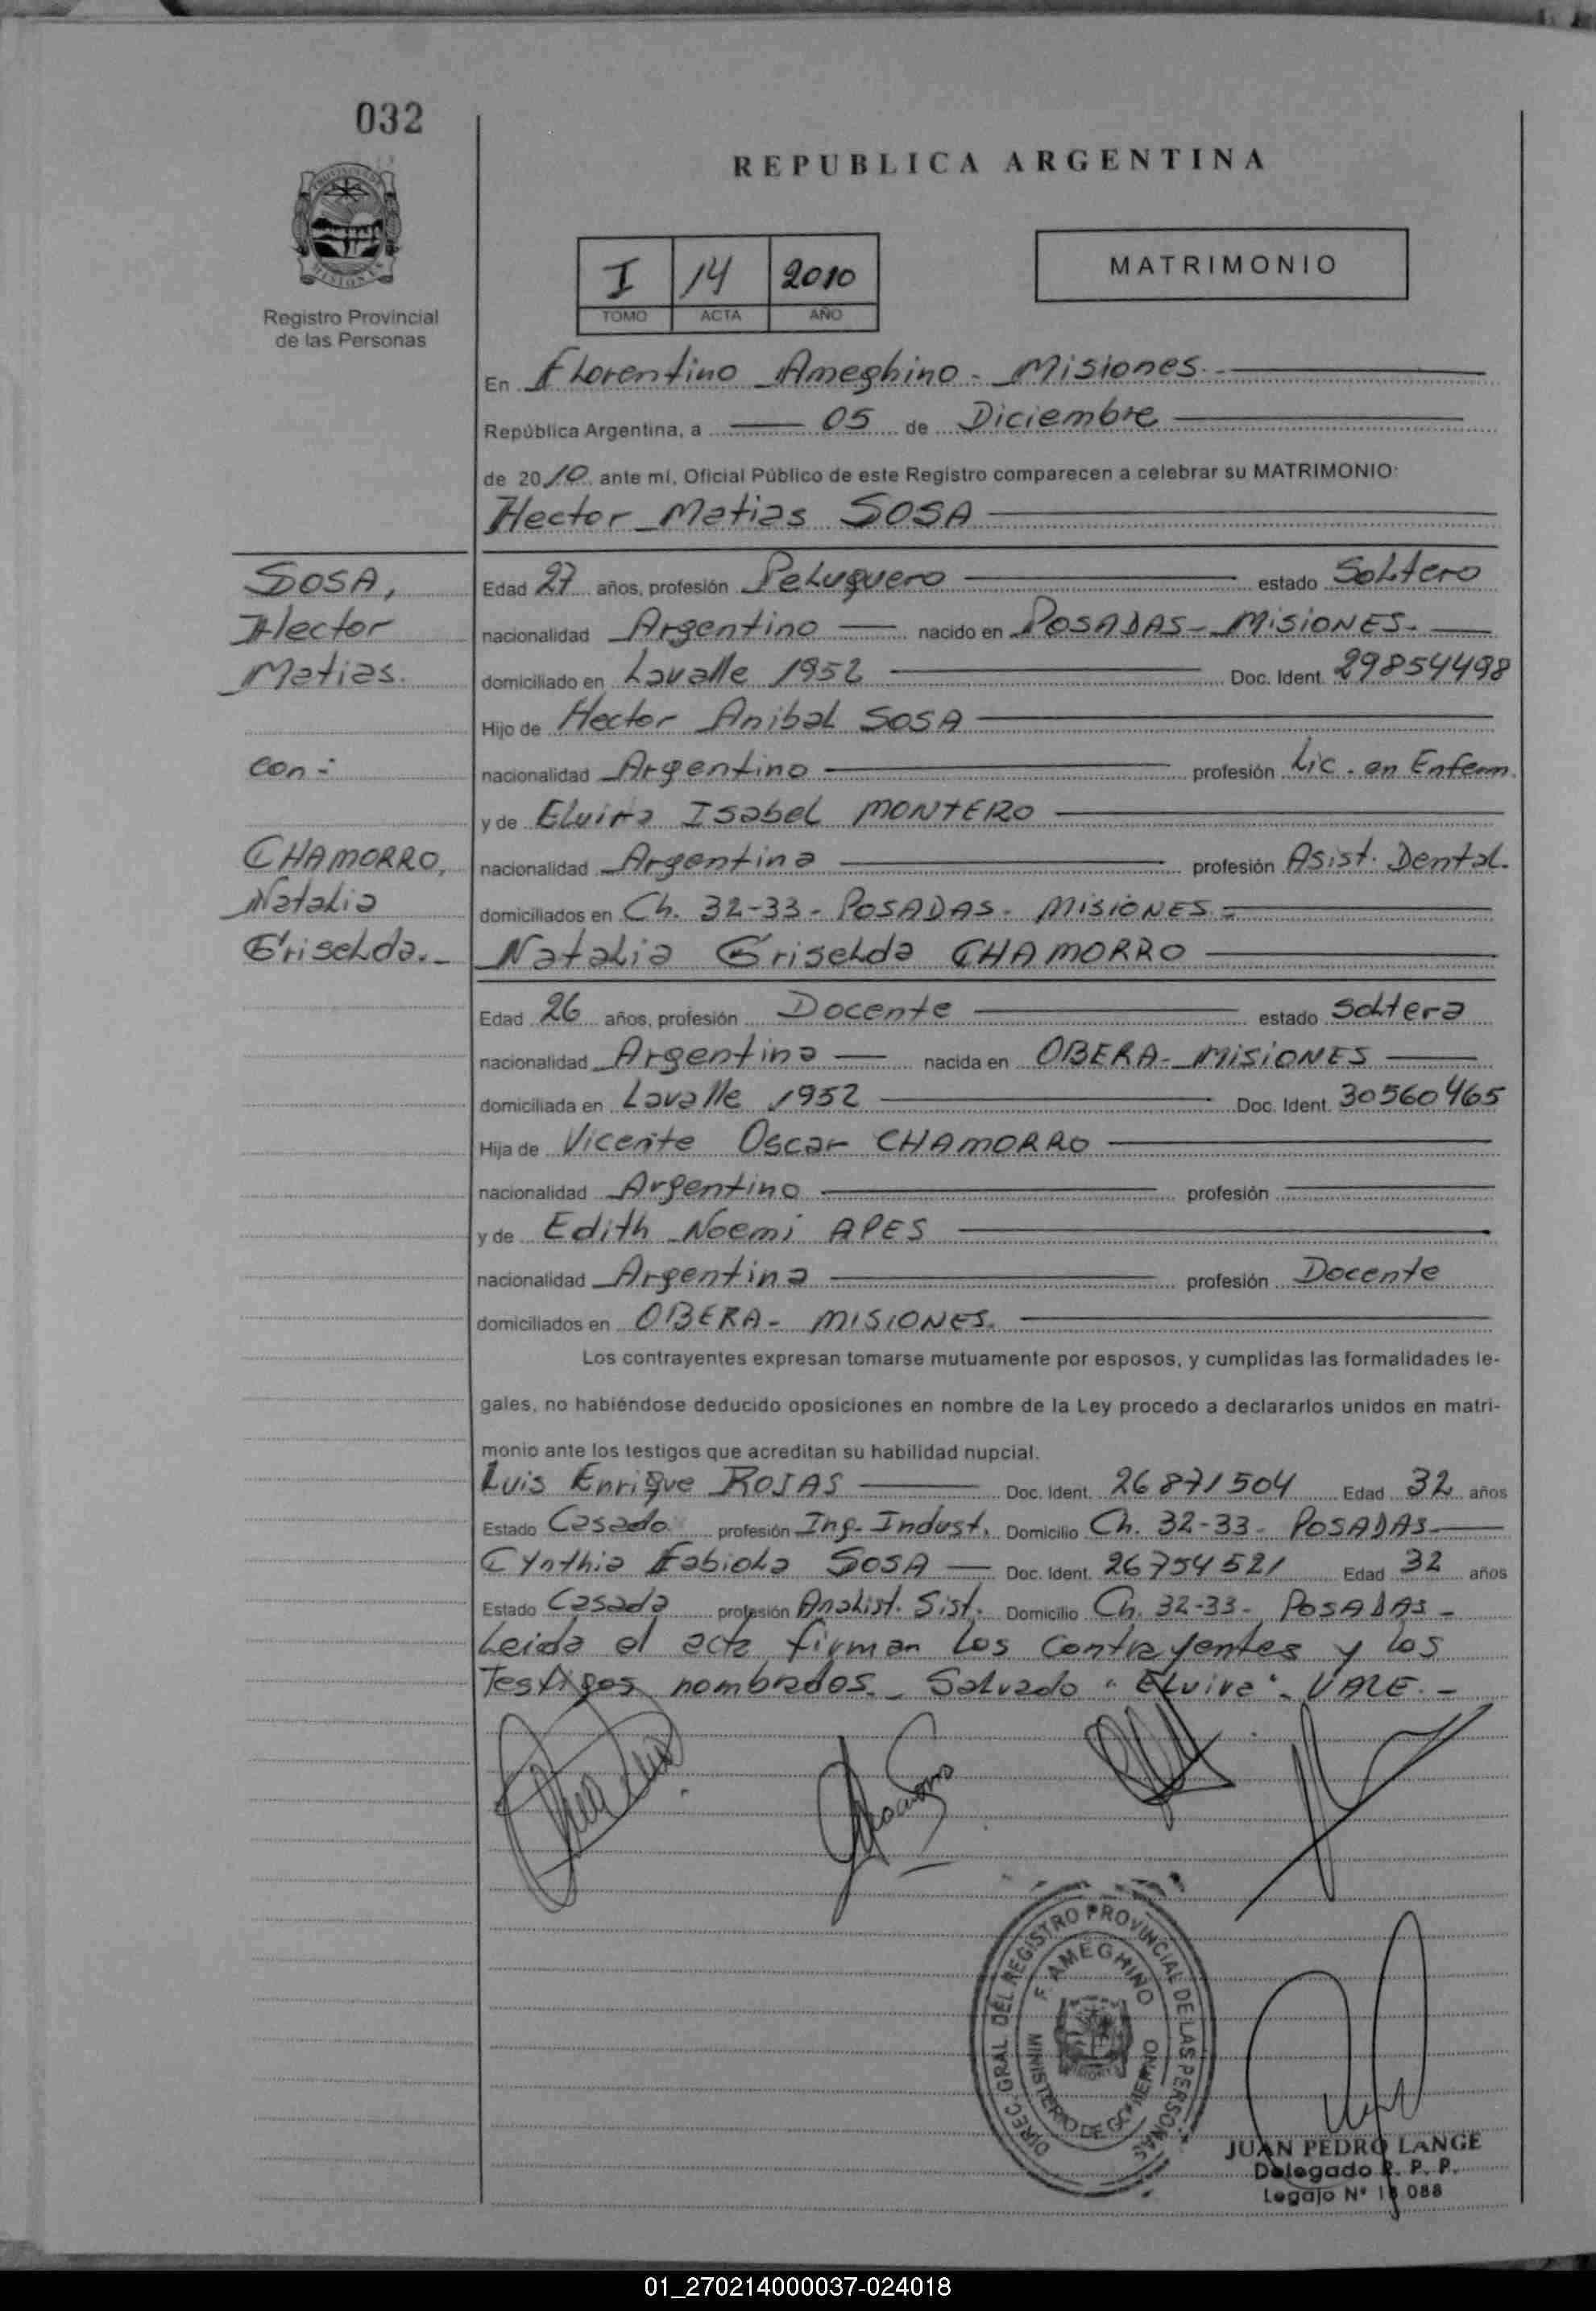 032
REPUBLICA ARGENTINA
I 14 2010
TOMO ACTA AÑO
MATRIMONIO
Registro Provincial
de las Personas
En Florentino Ameghino - Misiones.-
República Argentina, a 05 de Diciembre
de 2010 ante mí, Oficial Público de este Registro comparecen a celebrar su MATRIMONIO:
Hector Matias SOSA
SOSA,
Hector
Matias.
con:
CHAMORRO,
Natalia
Griselda.-
Edad 27 años, profesión Peluquero estado Soltero
nacionalidad Argentino nacido en POSADAS - MISIONES.
domiciliado en Lavalle 1952 Doc. Ident. 29854498
Hijo de Hector Anibal SOSA
nacionalidad Argentino profesión Lic. en Enferm.
y de Elvira Isabel MONTERO
nacionalidad Argentina profesión Asist. Dental.
domiciliados en Ch. 32-33 - POSADAS - MISIONES.-
Natalia Griselda CHAMORRO
Edad 26 años, profesión Docente estado Soltera
nacionalidad Argentina nacida en OBERA - MISIONES
domiciliada en Lavalle 1952 Doc. Ident. 30560465
Hija de Vicente Oscar CHAMORRO
nacionalidad Argentino profesión
y de Edith Noemi APES
nacionalidad Argentina profesión Docente
domiciliados en OBERA - MISIONES.
Los contrayentes expresan tomarse mutuamente por esposos, y cumplidas las formalidades le-
gales, no habiéndose deducido oposiciones en nombre de la Ley procedo a declararlos unidos en matri-
monio ante los testigos que acreditan su habilidad nupcial.
Luis Enrique ROJAS Doc. Ident. 26871504 Edad 32 años
Estado Casado profesión Ing. Indust. Domicilio Ch. 32-33 - POSADAS
Cynthia Fabiola SOSA Doc. Ident. 26754521 Edad 32 años
Estado Casada profesión Analist. Sist. Domicilio Ch. 32-33 - POSADAS -
Leida el acta firman los contrayentes y los
Testigos nombrados.- Salvado "Elvira" - VALE.-
DIREC. GRAL. DEL REGISTRO PROVINCIAL DE LAS PERSONAS
F. AMEGHINO
MINISTERIO DE GOBIERNO
JUAN PEDRO LANGE
Delegado R. P. P.
Legajo Nº
01_270214000037-024018